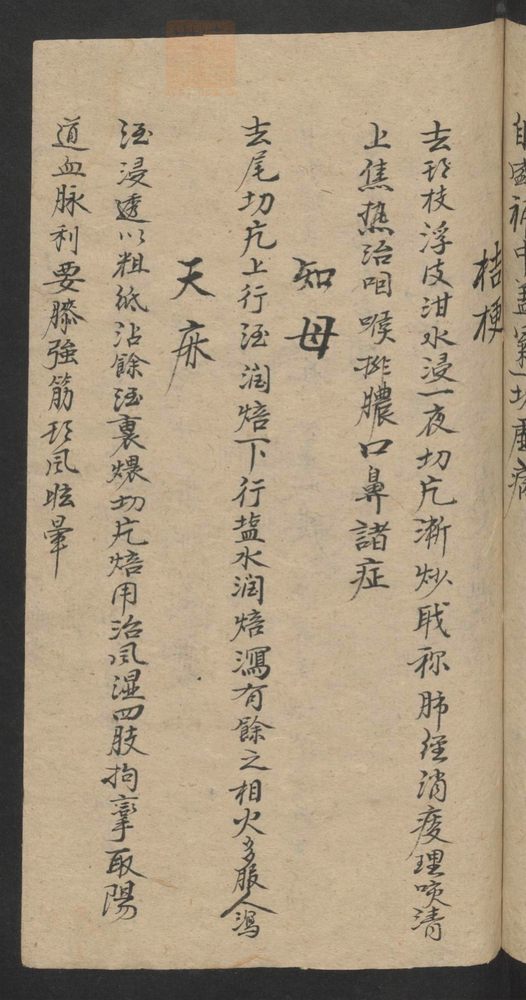 桔梗
去玭枝浮皮泔水浸一夜切片漸炒戝称肺经消痰理咳清
上焦热治咽喉排膿口鼻諸症
知母
去尾切片上行酒润焙下行盐水润焙瀉有餘之相火多服人瀉
天麻
酒浸透以粗纸沾餘酒裏煨切片焙用治风湿四肢拘挛取陽
道血脉利要膝強筋玭风眩暈